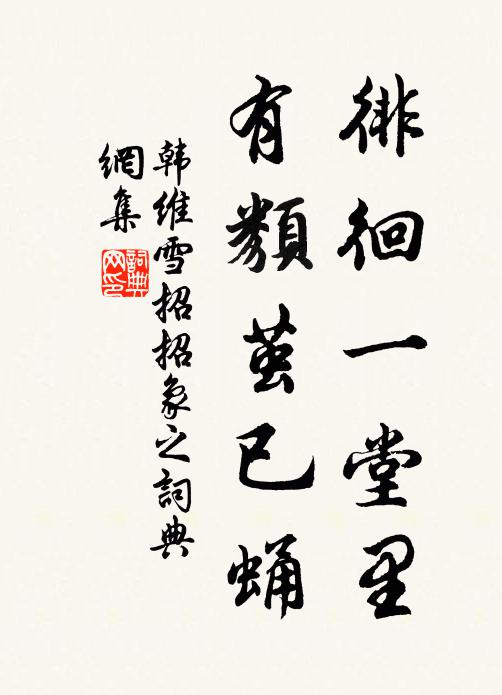 徘徊一堂里
有類茧已蛹
韩維雪招招象之詞典
網集
詞典
网印